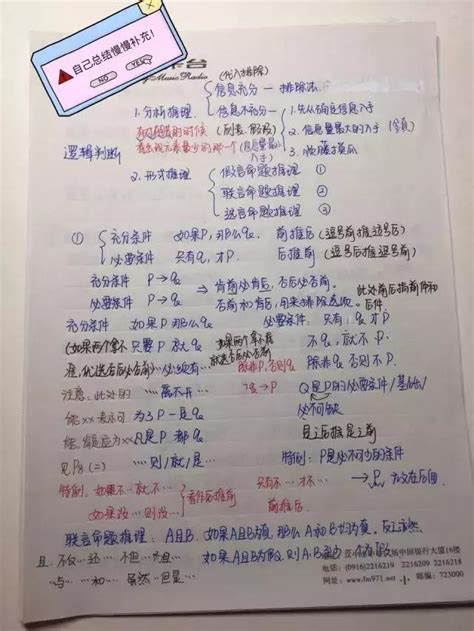 自己总结慢慢补充！
NO YES
Music Radio
(代入排除)
信息充分 — 排除法
1.分析推理 信息不充分
(列表、假设)
1. 先从确定信息入手
2. 信息量最大的入手
3. 顺藤摸瓜
逻辑判断
2. 形式推理
假言命题推理 ①
联言命题推理 ②
选言命题推理 ③
① 充分条件 如果P,那么q 前推后(逗号前推逗号后)
必要条件 只有q,才P. 后推前 (逗号后推逗号前)
充分条件 P→q
必要条件 P→q
肯前必肯后,否后必否前
否前和肯后,用来排除选项.
此处前后指前件和后件.
充分条件 如果P那么q 必要条件: 只有q才P
(如果两个拿不准,优选否后必否前)
只要P就q 不q,就不P
必须有 除非P,否则q 除非q否则不P
注意:此处的 离不开 Q是P的必要条件/基础/
必不可缺
能xx表示可 为了P一定q
能,肯定应为 凡是P都q 见后推见前
见P8(二) …则/就/是… 特别: P是必不可少的条件
特别: 如果不…就不… 看作后推前 只有不…才… →P 方文在后面
如果没…则没… 前推后
联言命题推理: A且B 如果A且B为真,那么A和B均为真。反之亦然
且: 不仅…还… 不但…而且… 如果A且B为假,则A、B至少一个为假
与… …和… 虽然…但是…
汉中市 中国银行大厦16楼
电话:(0916)2216219 2216209 2216218
网址: www.fm971.net 邮编: 723000